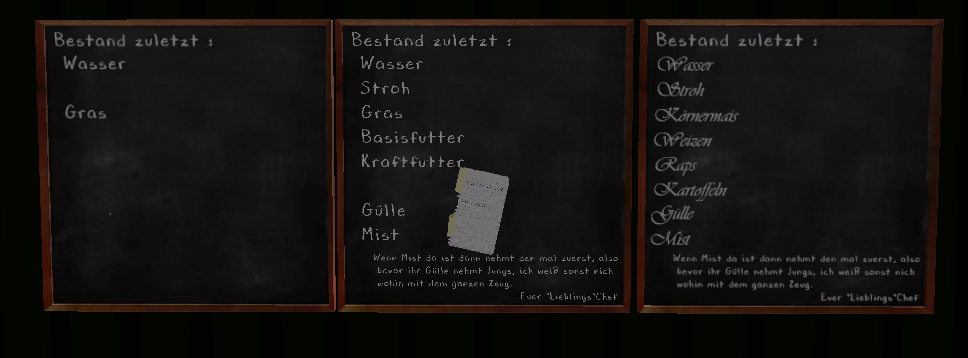 Bestand zuletzt :
Wasser
Gras
Bestand zuletzt :
Wasser
Stroh
Gras
Basisfutter
Kraftfutter
Gülle
Mist
Wenn Mist da ist dann nehmt den mal zuerst, also
bevor ihr Gülle nehmt Jungs, ich weiß sonst nich
wohin mit dem ganzen Zeug.
Euer "Lieblings"Chef
Bestand zuletzt :
Wasser
Stroh
Körnermais
Weizen
Raps
Kartoffeln
Gülle
Mist
Wenn Mist da ist dann nehmt den mal zuerst, also
bevor ihr Gülle nehmt Jungs, ich weiß sonst nich
wohin mit dem ganzen Zeug.
Euer "Lieblings"Chef